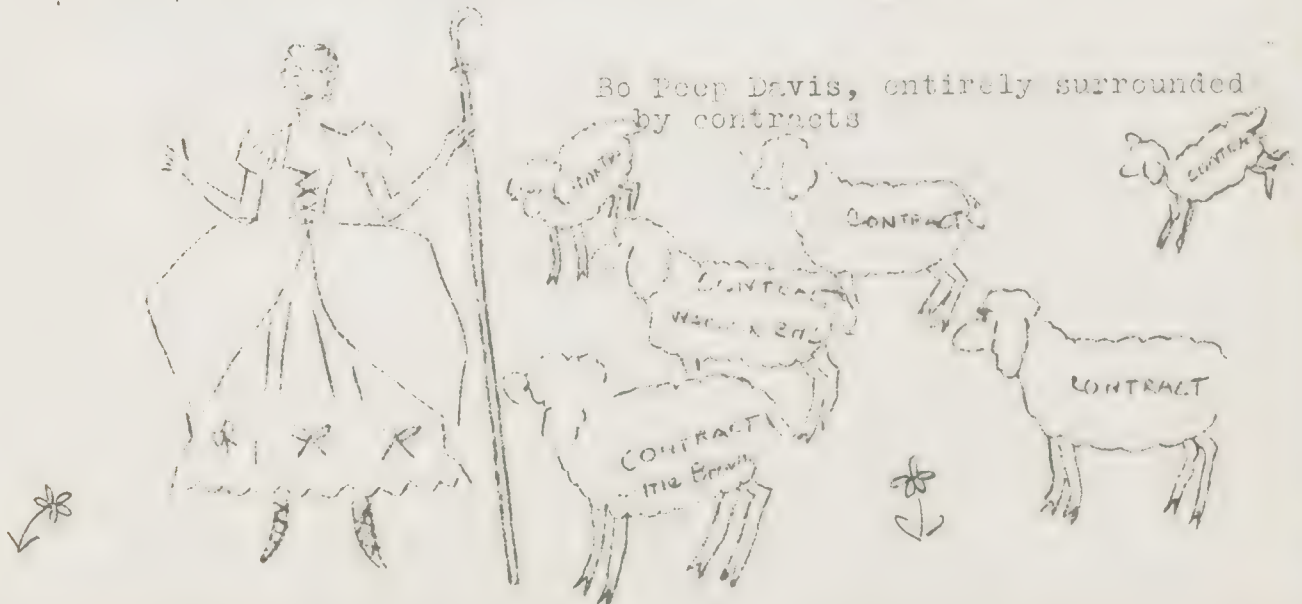 Bo Peep Davis, entirely surrounded
by contracts
CONTRACT
CONTRACT
CONTRACT
CONTRACT
CONTRACT